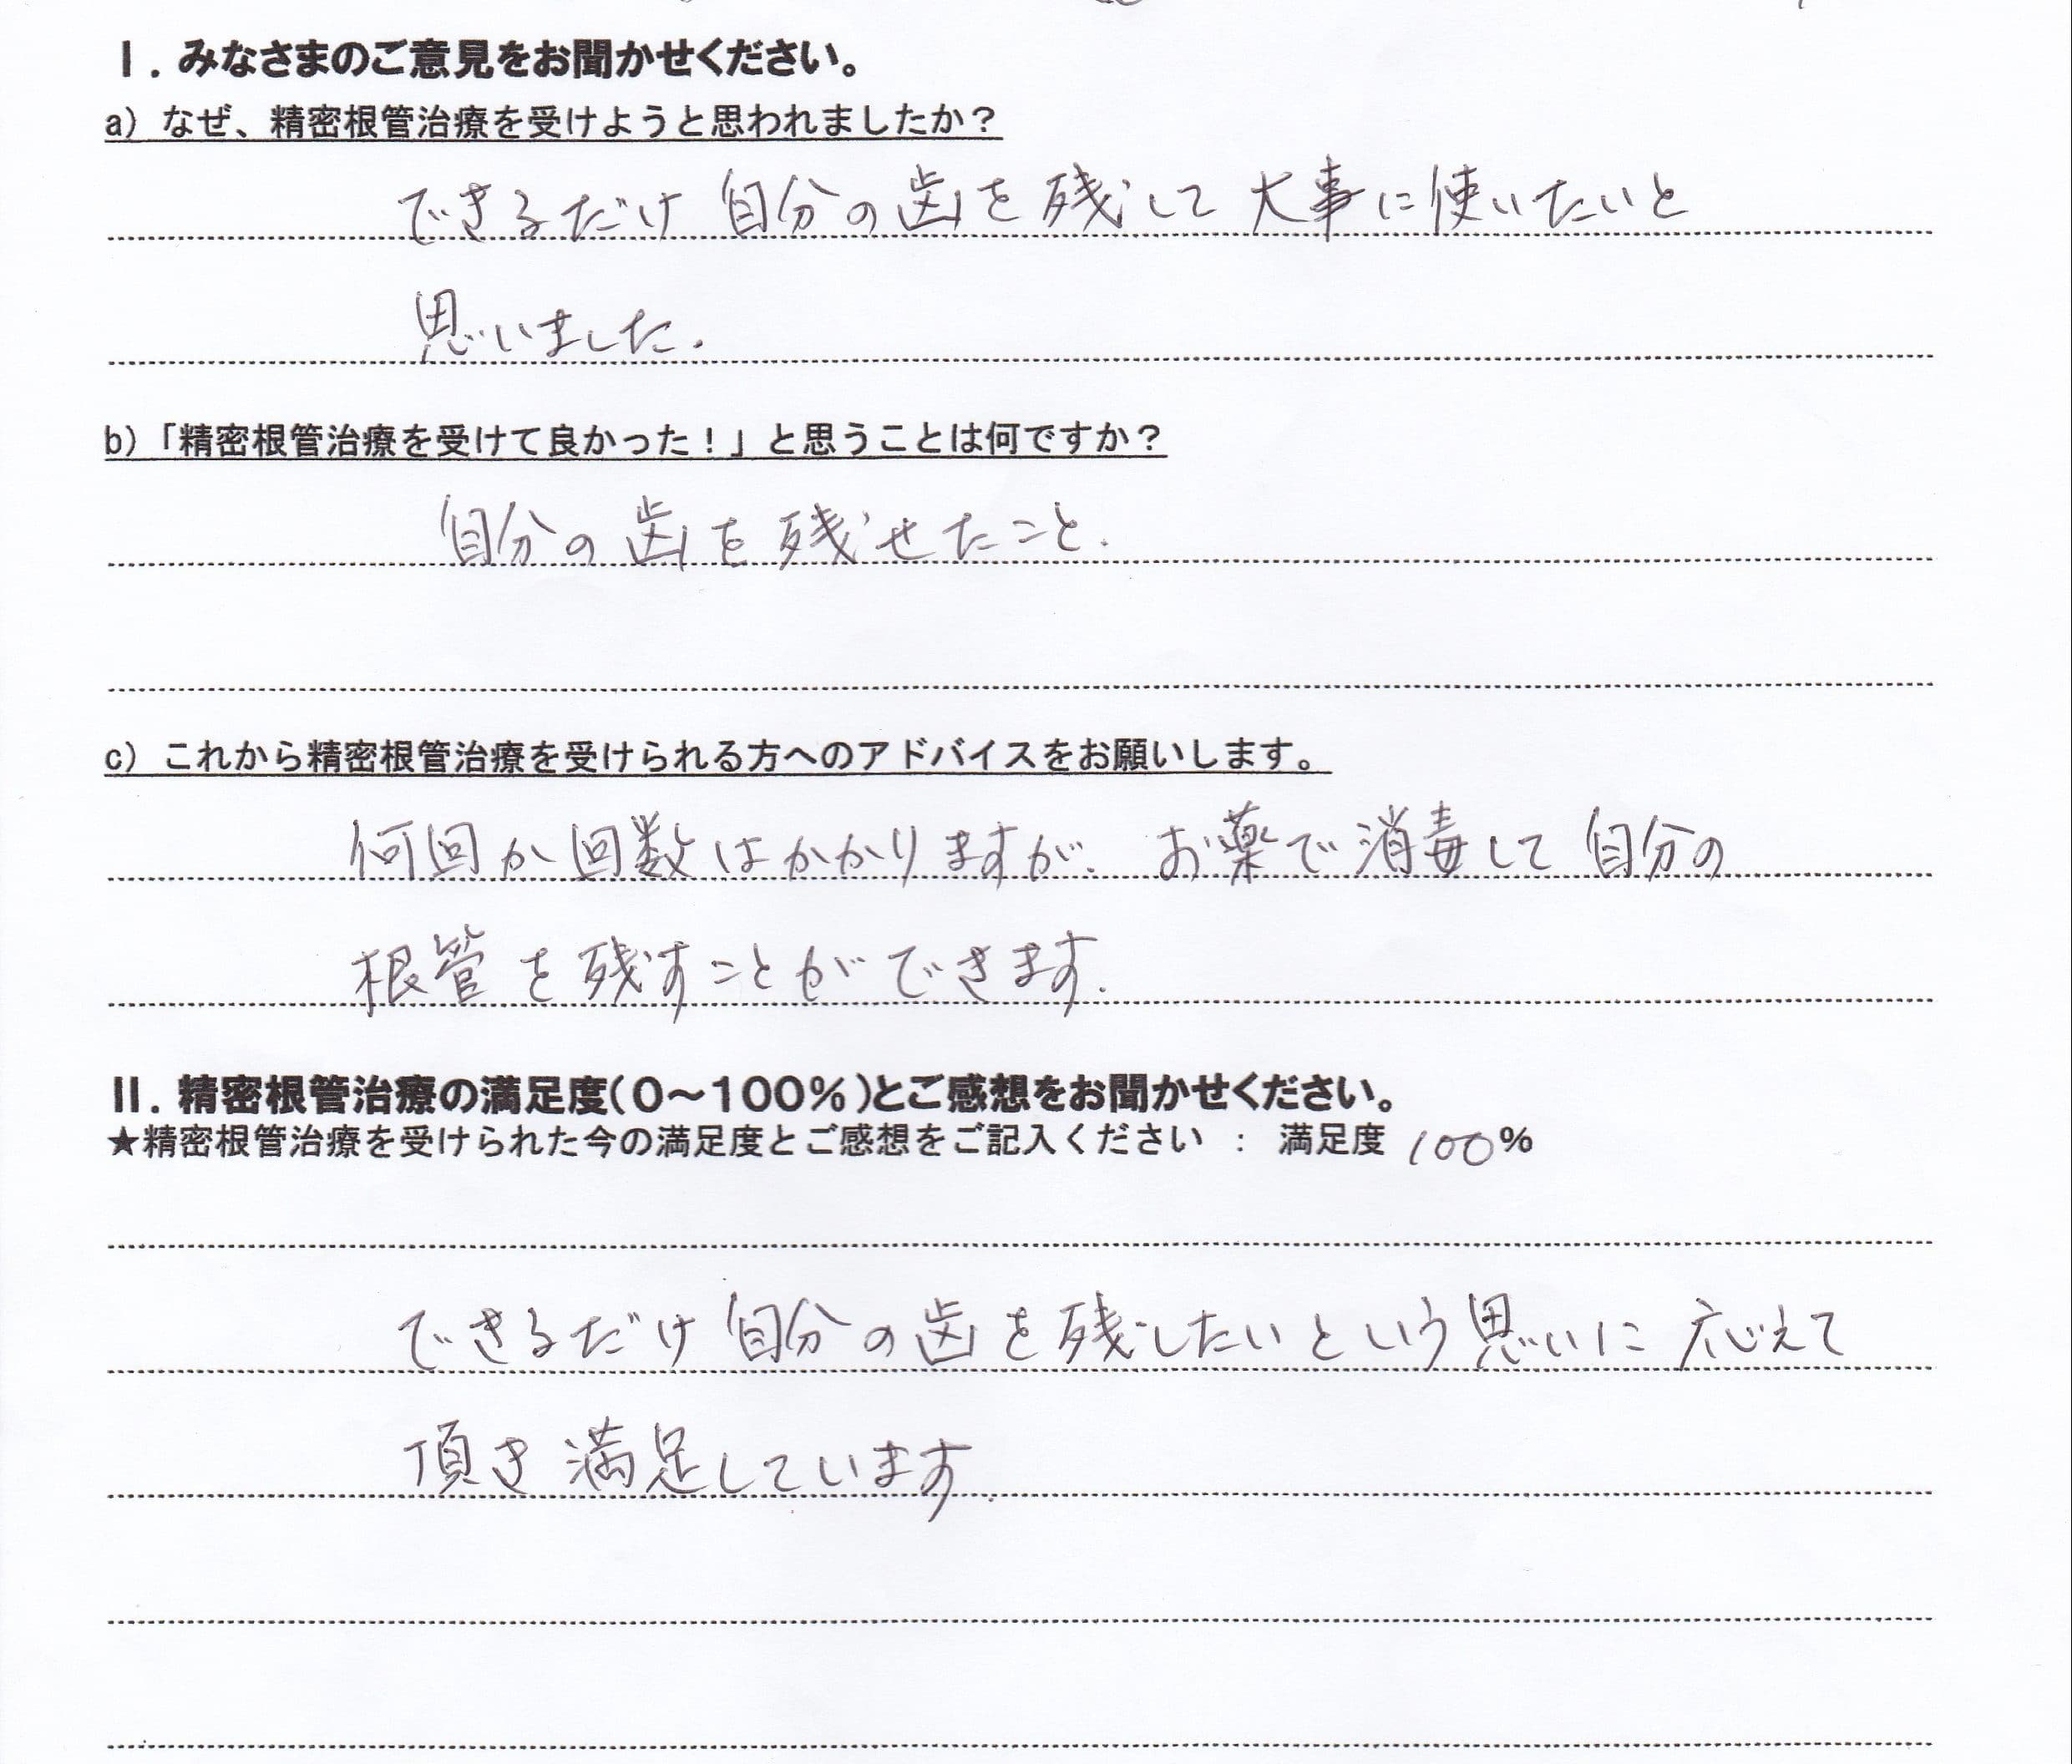 I. みなさまのご意見をお聞かせください。
a) なぜ、精密根管治療を受けようと思われましたか？
できるだけ自分の歯を残して大事に使いたいと
思いました.
b)「精密根管治療を受けて良かった！」と思うことは何ですか？
自分の歯を残せたこと.
c) これから精密根管治療を受けられる方へのアドバイスをお願いします。
何回か回数はかかりますが、お薬で消毒して自分の
根管を残すことができます.
II. 精密根管治療の満足度(0～100%)とご感想をお聞かせください。
★精密根管治療を受けられた今の満足度とご感想をご記入ください : 満足度 100%
できるだけ自分の歯を残したいという思いに応えて
頂き満足しています.